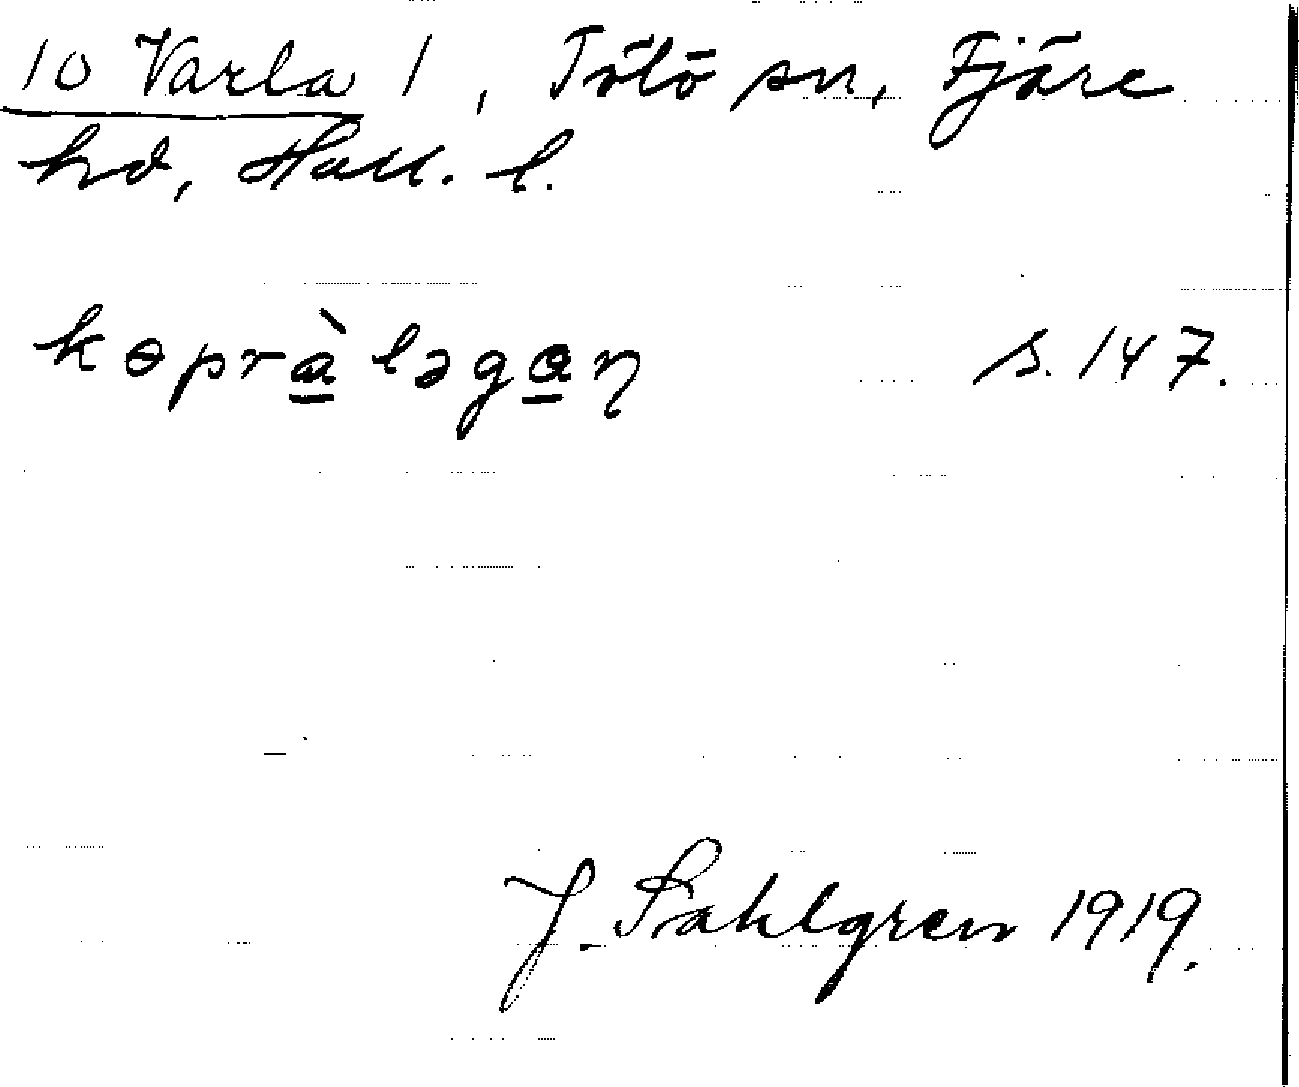 10 Varla 1, Tölö sn, Fjäre
hd, Hall. l.
kɵpràləgan̡ s. 147.
J. Sahlgren 1919.